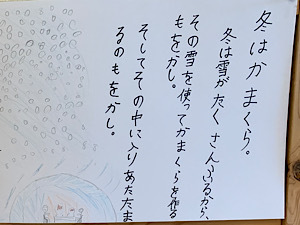 冬はかまくら。
冬は雪がたくさんふるから、
その雪を使ってかまくらを作る
もをかし。
そしてその中に入りあたたま
るのもをかし。